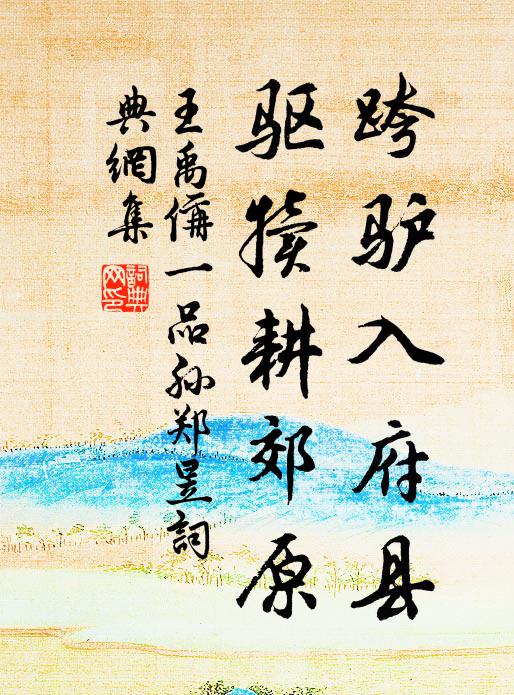 跨驴入府县
驱犊耕郊原
王禹偁一品孙郑昱詞
典網集
詞典网印